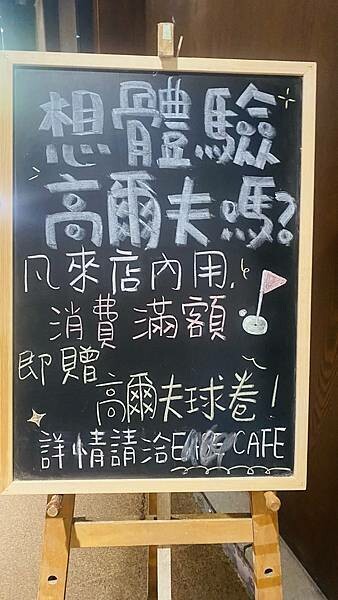 想體驗
高爾夫嗎?
凡來店內用,
消費滿額
即贈
高爾夫球卷!
詳情請洽 CAFE